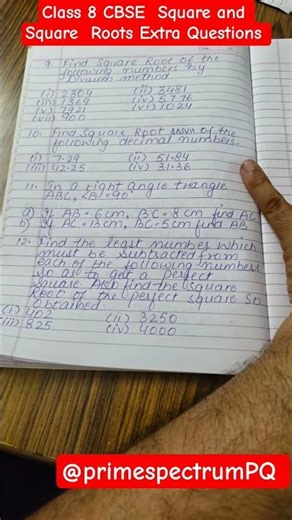 Class 8 CBSE Square and
Square Roots Extra Questions
9. Find Square Root of the
following numbers by
Division method
(i) 2304 (ii) 3481
(iii) 1369 (iv) 5776
(v) 7921 (vi) 1024
(vii) 900
10. Find Square Root of the
following decimal numbers.
(i) 7.29 (ii) 51.84
(iii) 42.25 (iv) 31.36
11. In a right angle triangle
ABC, ∠B = 90°
a) If AB = 6cm, BC = 8cm find AC
b) If AC = 13cm, BC = 5cm find AB
12. Find the least number which
must be subtracted from
each of the following numbers
so as to get a perfect
Square. Also find the square
Root of the perfect square so
obtained
(i) 402 (ii) 3250
(iii) 825 (iv) 4000
@primespectrumPQ